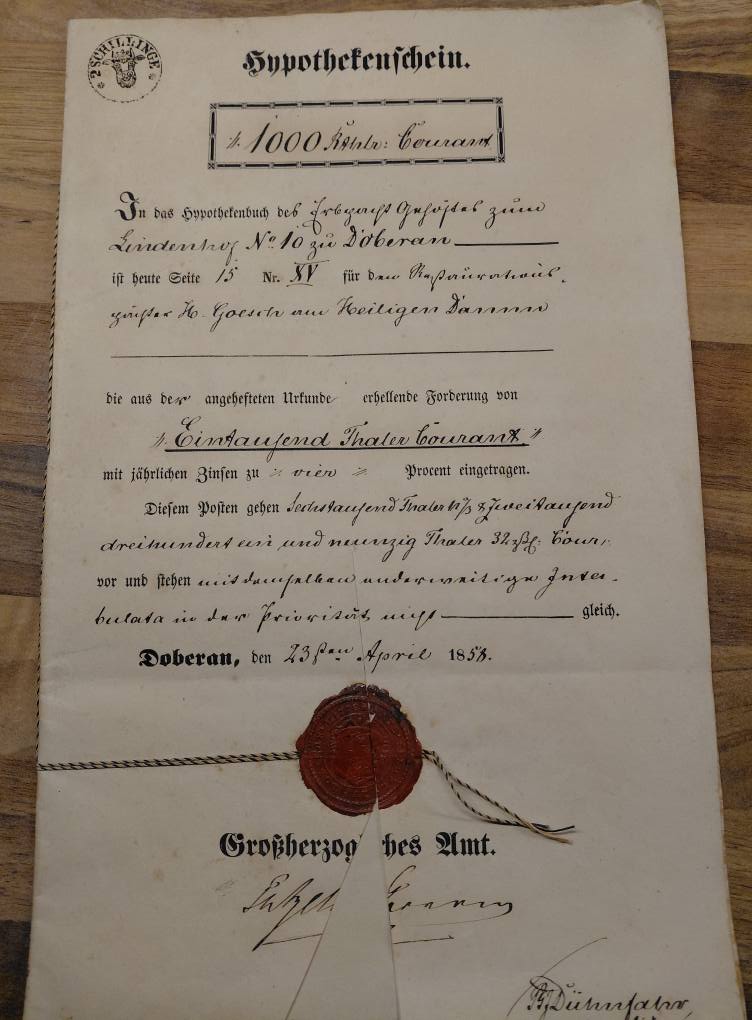 2 SCHILLINGE
Hypothekenschein.
1000 Rthlr: Courant
In das Hypothekenbuch des Erbpacht Gehöftes zum
Lindenhof No. 10 zu Doberan
ist heute Seite 15 Nr. XV für den Restaurations-
pächter H. Goesch am Heiligen Damm
die aus der angehefteten Urkunde erhellende Forderung von
Eintausend Thaler Courant
mit jährlichen Zinsen zu vier Procent eingetragen.
Diesem Posten gehen Sechstausend Thaler & Zweitausend
dreihundert ein und neunzig Thaler 32 ßl: Cour:
vor und stehen mit demselben anderweitige Inta-
bulata in der Priorität nicht gleich.
Doberan, den 23sten April 1858.
Großherzog ches Amt.